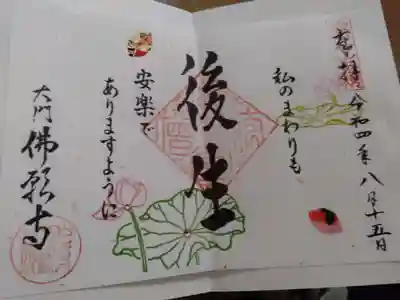 奉拝
令和四年八月十五日
私のまわりも
後生
安楽で
ありますように
大門佛願寺